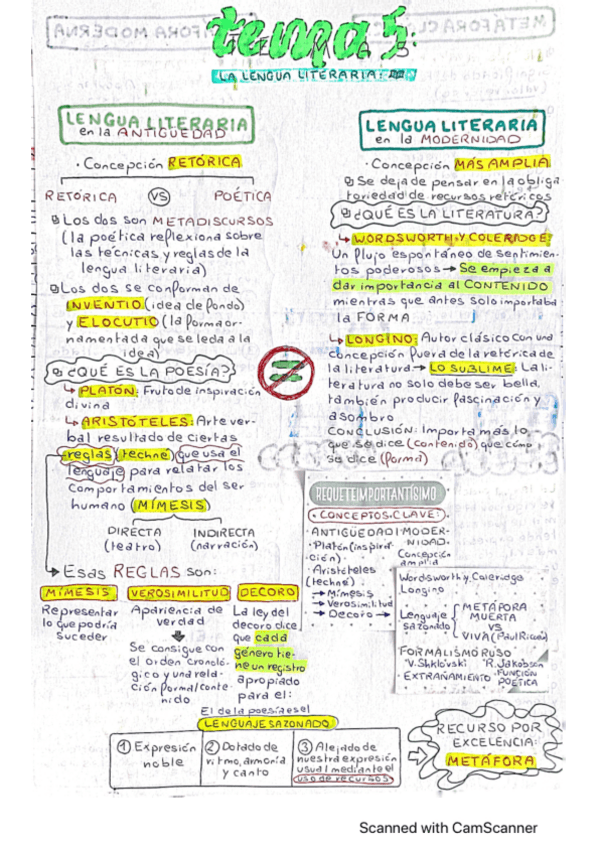 tema 5:
LA LENGUA LITERARIA:
LENGUA LITERARIA
en la ANTIGÜEDAD
· Concepción RETÓRICA
RETÓRICA VS POÉTICA
Los dos son METADISCURSOS
(la poética reflexiona sobre
las técnicas y reglas de la
lengua literaria)
Los dos se conforman de
INVENTIO (idea de fondo)
y ELOCUTIO (la forma or-
namentada que se le da a la
idea)
¿QUÉ ES LA POESÍA?
↳ PLATÓN: Fruto de inspiración
divina
↳ ARISTÓTELES: Arte ver-
bal resultado de ciertas
reglas (techné) que usa el
lenguaje para relatar los
comportamientos del ser
humano (MÍMESIS)
DIRECTA INDIRECTA
(teatro) (narración)
→ Esas REGLAS son:
MÍMESIS VEROSIMILITUD DECORO
Representar
lo que podría
suceder
Apariencia de
verdad
Se consigue con
el orden cronoló-
gico y una rela-
ción formal/conte-
nido
La ley del
decoro dice
que cada
género tie-
ne un registro
apropiado
para él:
El de la poesía es el
LENGUAJE SAZONADO
① Expresión
noble
② Dotado de
ritmo, armonía
y canto
③ Alejado de
nuestra expresión
usual mediante el
uso de recursos
LENGUA LITERARIA
en la MODERNIDAD
· Concepción MÁS AMPLIA
Se deja de pensar en la obliga
toriedad de recursos retóricos
¿QUÉ ES LA LITERATURA?
↳ WORDSWORTH Y COLERIDGE:
Un flujo espontáneo de sentimien-
tos poderosos → Se empieza a
dar importancia al CONTENIDO
mientras que antes solo importaba
la FORMA
↳ LONGINO: Autor clásico con una
concepción fuera de la retórica de
la literatura → LO SUBLIME: La li-
teratura no solo debe ser bella,
también producir fascinación y
asombro
CONCLUSIÓN: Importa más lo
que se dice (contenido) que cómo
se dice (forma)
REQUETEIMPORTANTÍSIMO
· CONCEPTOS CLAVE:
· ANTIGÜEDAD
· Platón (inspira
ción).
· Aristóteles
(techné).
→ Mímesis
→ Verosimilitud
→ Decoro →
· MODER-
NIDAD.
Concepción
amplia
Wordsworth y Coleridge
Longino
Lenguaje
sazonado
METÁFORA
MUERTA
VS
VIVA (Paul Ricoeur)
FORMALISMO RUSO
V. Shklovski R. Jakobson
· EXTRAÑAMIENTO · FUNCIÓN
POÉTICA
RECURSO POR
EXCELENCIA:
METÁFORA
Scanned with CamScanner